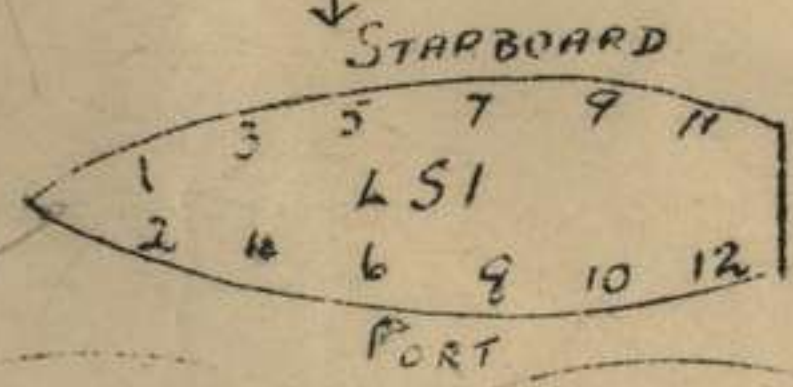 STARBOARD
1 3 5 7 9 11
LSI
2 4 6 8 10 12
PORT